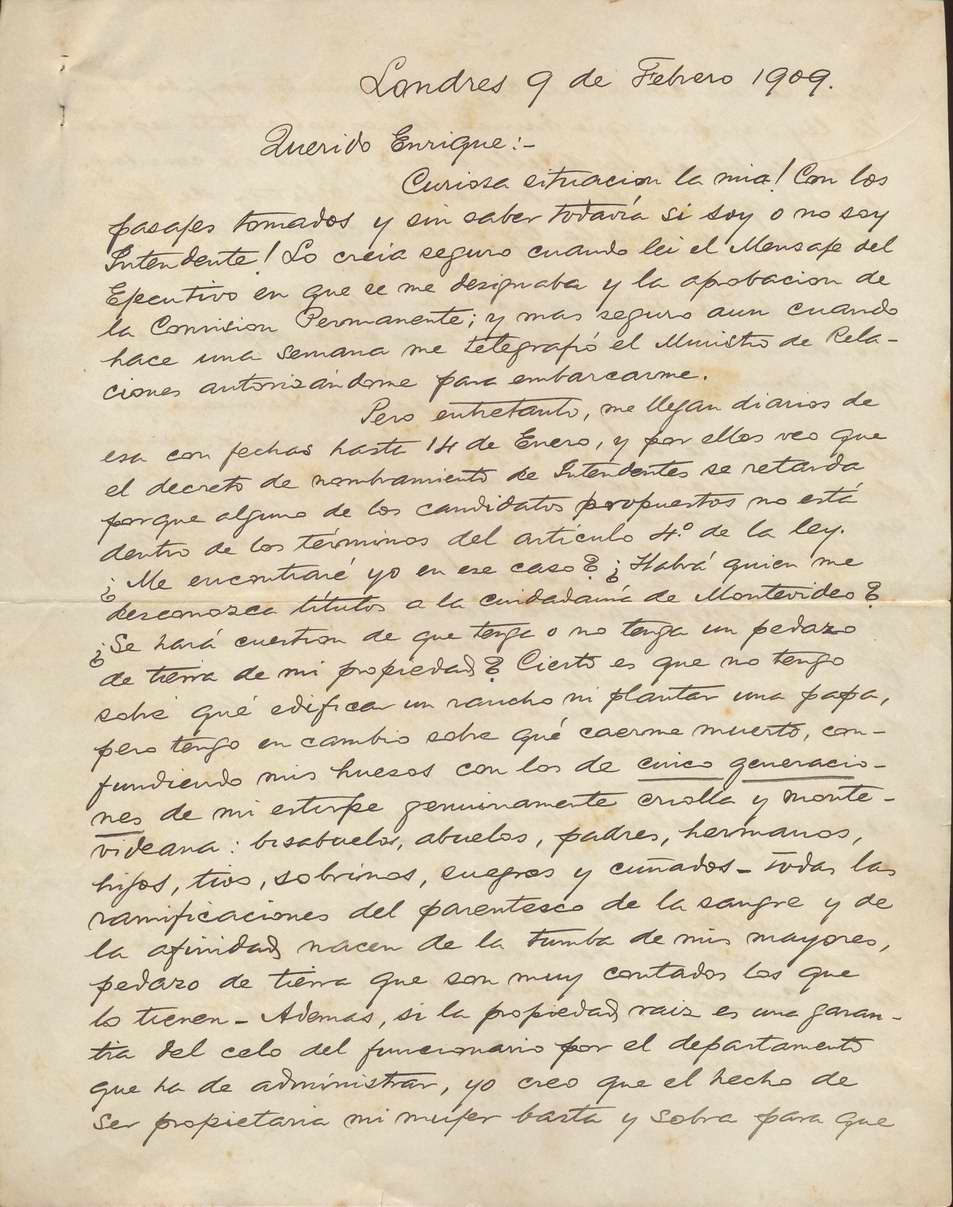 Londres 9 de Febrero 1909.
Querido Enrique:-
Curiosa situacion la mia! Con los
pasajes tomados y sin saber todavía si soy o no soy
Intendente! Lo creia seguro cuando lei el Mensaje del
Ejecutivo en que se me designaba y la aprobacion de
la Comision Permanente; y mas seguro aun cuando
hace una semana me telegrafió el Ministro de Rela-
ciones autorizándome para embarcarme.
Pero entretanto, me llegan diarios de
esa con fechas hasta 14 de Enero, y por ellos veo que
el decreto de nombramiento de Intendentes se retarda
porque alguno de los candidatos propuestos no está
dentro de los términos del artículo 4º de la ley.
¿Me encontraré yo en ese caso? ¿Habrá quien me
desconozca títulos a la cuidadanía de Montevideo?
¿Se hará cuestion de que tenga o no tenga un pedazo
de tierra de mi propiedad? Cierto es que no tengo
sobre qué edificar un rancho ni plantar una papa,
pero tengo en cambio sobre qué caerme muerto, con-
fundiendo mis huesos con los de cinco generacio-
nes de mi estirpe genuinamente criolla y monte-
videana: bisabuelos, abuelos, padres, hermanos,
hijos, tios, sobrinos, suegros y cuñados - todas las
ramificaciones del parentesco de la sangre y de
la afinidad nacen de la tumba de mis mayores,
pedazo de tierra que son muy contados los que
lo tienen - Ademas, si la propiedad raiz es una garan-
tia del celo del funcionario por el departamento
que ha de administrar, yo creo que el hecho de
ser propietaria mi mujer basta y sobra para que